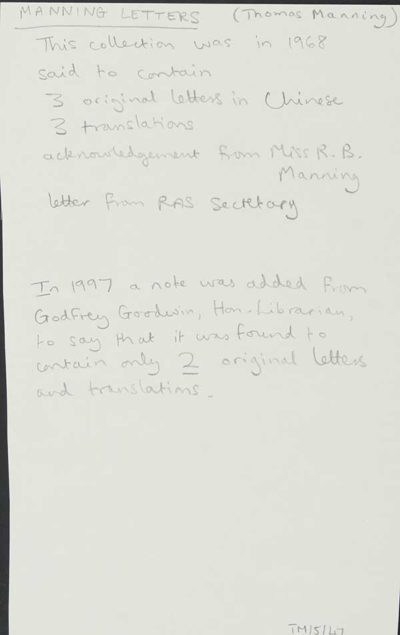 MANNING LETTERS (Thomas Manning)
This collection was in 1968
said to contain
3 original letters in Chinese
3 translations
acknowledgement from Miss R. B.
Manning
letter from RAS Secretary
In 1997 a note was added from
Godfrey Goodwin, Hon. Librarian,
to say that it was found to
contain only 2 original letters
and translations.
TM/5/47